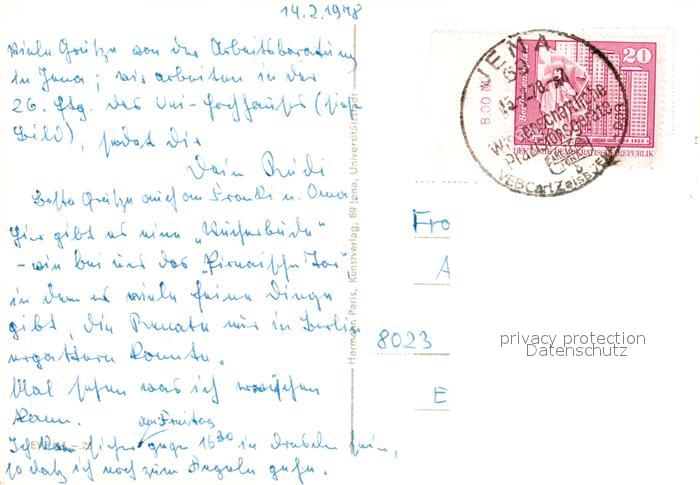 14.2.1978
Viele Grüße von der Arbeitsberatung
in Jena; wir arbeiten in der
26. Etg. des Uni-Hochhauses (siehe
Bild), sodaß die
Dein Rudi
Beste Grüße auch an Franki u. Oma
Hier gibt es eine „Kücherbude"
– wie bei uns das „Pirnaische Tor",
in dem es viele feine Dinge
gibt, die Renate nur in Berlin
ergattern konnte.
Mal sehen was ich erwischen
kann.
am Freitag
Ich kann sicher gegen 16³⁰ in Dresden sein,
so daß ich noch zum Kegeln gehe.
Hermann Paris, Kunstverlag, 69 Jena, Universitätsstadt
8.00 M
20
DEUTSCHE DEMOKRATISCHE REPUBLIK
JENA
69
wissenschaftliche
Präzisionsgeräte
VEB Carl Zeiss JENA
Fro
A
8023
E
privacy protection
Datenschutz